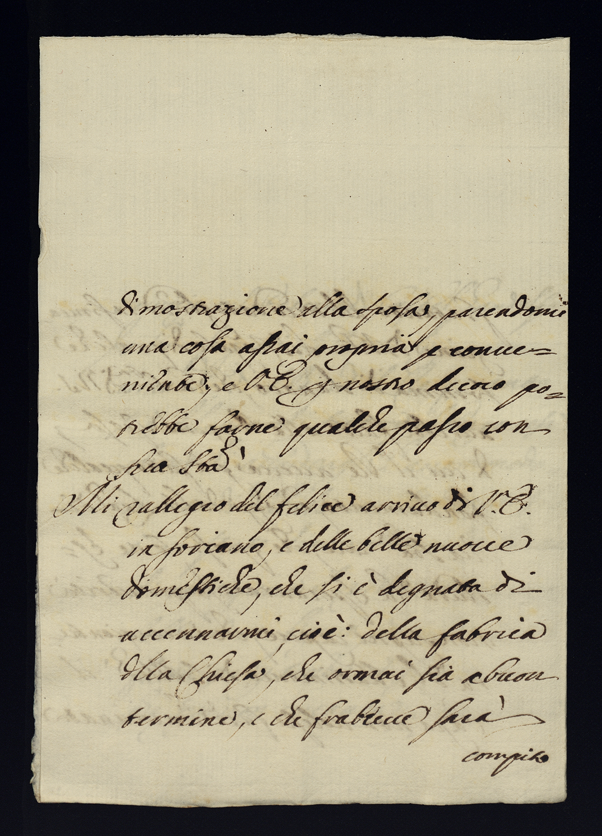 dimostrazione alla sposa, parendomi
una cosa assai propria e conve=
niente, e V.E. p nostro decoro po=
trebbe farne qualche passo con
sua Stà
Mi rallegro del felice arrivo di V.E.
in soriano, e delle belle nuove
domestiche, che si è degnata di
accennarmi, cioè: della fabrica
della Chiesa, che ormai sia a buon
termine, e che frabreve sarà
compita